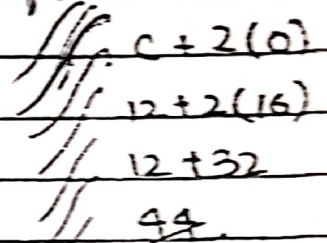 C + 2(0)
12 + 2(16)
12 + 32
44.